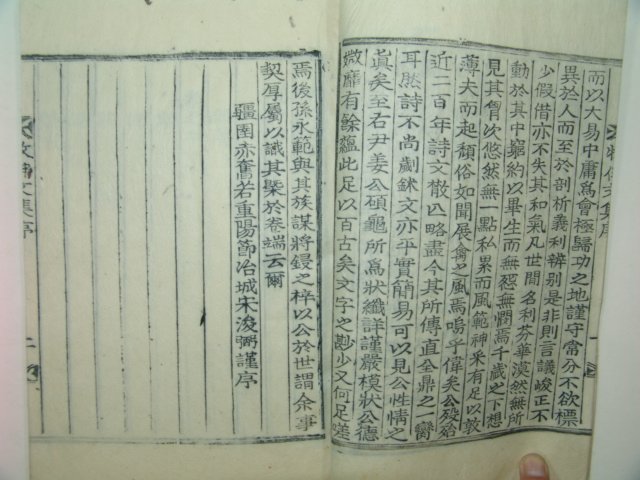 而以大易中庸爲會極歸功之地謹守常分不欲標
異於人而至於剖析義利辨別是非則言議峻正不
少假借亦不失其和氣凡世間名利芬華漠然無所
動於其中窮約以畢生而無怨無憫焉千歲之下想
見其胷次悠然無一點私累而風範神采有足以敦
薄夫而起頹俗如聞展禽之風焉嗚乎偉矣公歿殆
近二百年詩文散亾略盡今其所傳直全鼎之一臠
耳然詩不尚劌鉥文亦平實簡易可以見公性情之
眞矣至右尹姜公碩龜所爲狀纖詳謹嚴模狀公德
媺靡有餘蘊此足以百古矣文字之尠少又何足嗟
焉後孫永範與其族謀將鋟之梓以公於世謂余事
契厚屬以識其槩於卷端云爾
疆圉赤奮若重陽節冶城宋浚弼謹序
文集序
二